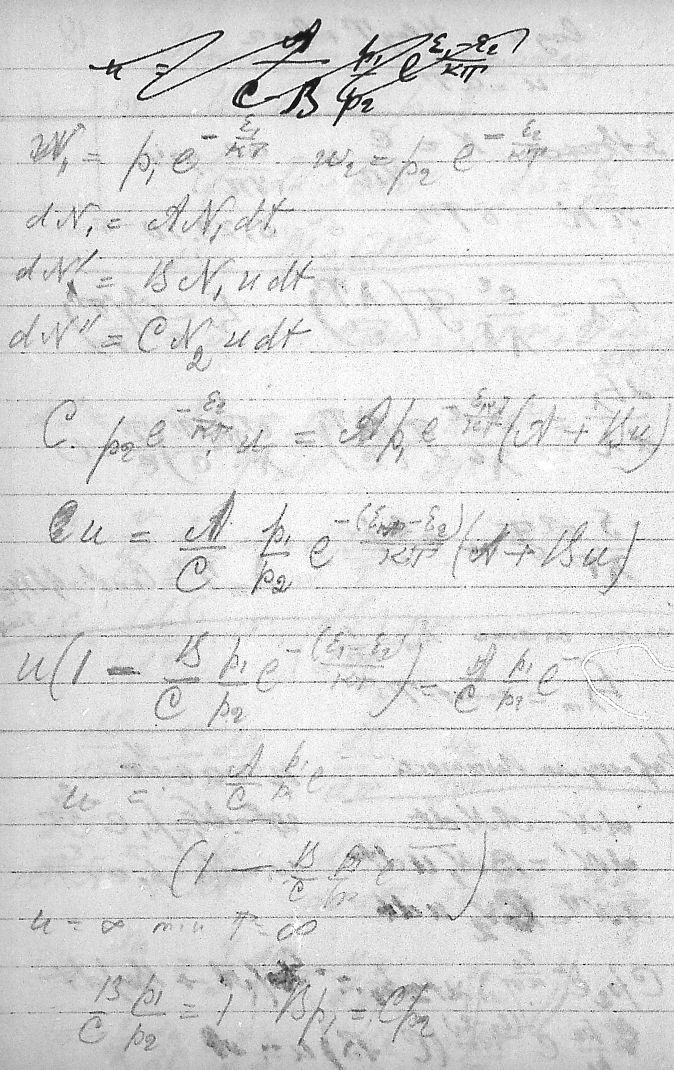 u = A/(C-B) p₁/p₂ e^((ε₁-ε₂)/(кT))
w₁ = p₁ e^(-ε₁/(кT)) w₂ = p₂ e^(-ε₂/(кT))
dN₁ = AN₁dt
dN₁' = BN₁udt
dN'' = CN₂udt
C p₂ e^(-ε₂/(кT)) u = p₁ e^(-ε₁/(кT)) (A + Bu)
u = A/C p₁/p₂ e^(-(ε₁-ε₂)/(кT)) (A + Bu)
u(1 - B/C p₁/p₂ e^(-(ε₁-ε₂)/(кT))) = A/C p₁/p₂ e⁻
u = A/C p₁/p e
(1 - B/C
u = ∞ T = ∞
B/C p₁/p₂ = 1 Bp₁ = Cp₂